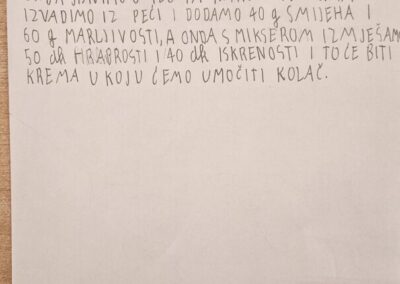 IZVADIMO IZ PEĆI I DODAMO 40 g SMIJEHA I
60 g MARLJIVOSTI, A ONDA S MIKSEROM IZMJEŠAMO
50 dk HRABROSTI I 40 dk ISKRENOSTI I TO ĆE BITI
KREMA U KOJU ĆEMO UMOČITI KOLAČ.